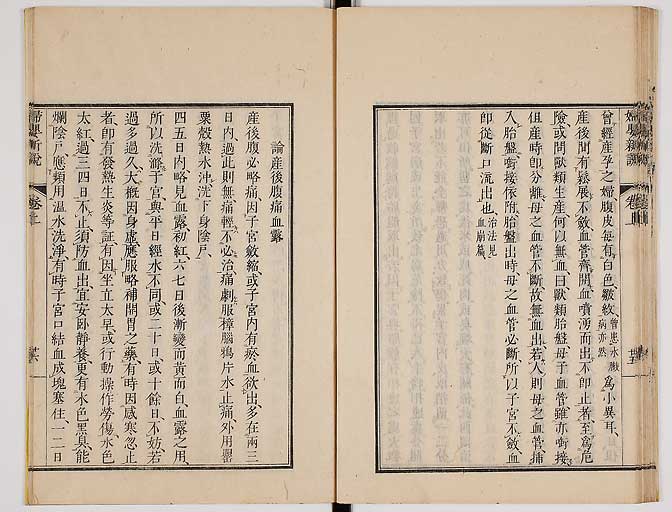 曾經產孕之婦腹皮每有白色皺紋曾患水臌病亦然為小異耳
產後間有鬆展不斂血管齊開血噴湧而出不即止者至為危
險或問獸類生產何以無血曰獸類胎盤母子血管雖亦啣接
但產時即分離母之血管不斷故無血出若人則母之血管插
入胎盤啣接依附胎盤出時母之血管必斷所以子宮不斂血
即從斷口流出也治法見血崩篇
婦嬰新說
卷上
論產後腹痛血露
產後腹必略痛因子宮斂縮或子宮內有瘀血欲出多在兩三
日內過此則無痛輕不必治痛劇服樟腦鴉片水止痛外用罌
粟殼熱水沖洗下身陰戶
四五日內略見血露初紅六七日後漸變而黃而白血露之用
所以洗滌子宮與平日經水不同或二十日或十餘日不妨若
過多過久大概因身虛應服略補開胃之藥有時因感寒忽止
者即有發熱生炎等証有因坐立太早或行動操作勞傷水色
太紅過三四日不止須防血出宜安臥靜養更有水色黑臭能
爛陰戶應頻用溫水洗淨有時子宮口結血成塊塞住一二日
婦嬰新說
卷上